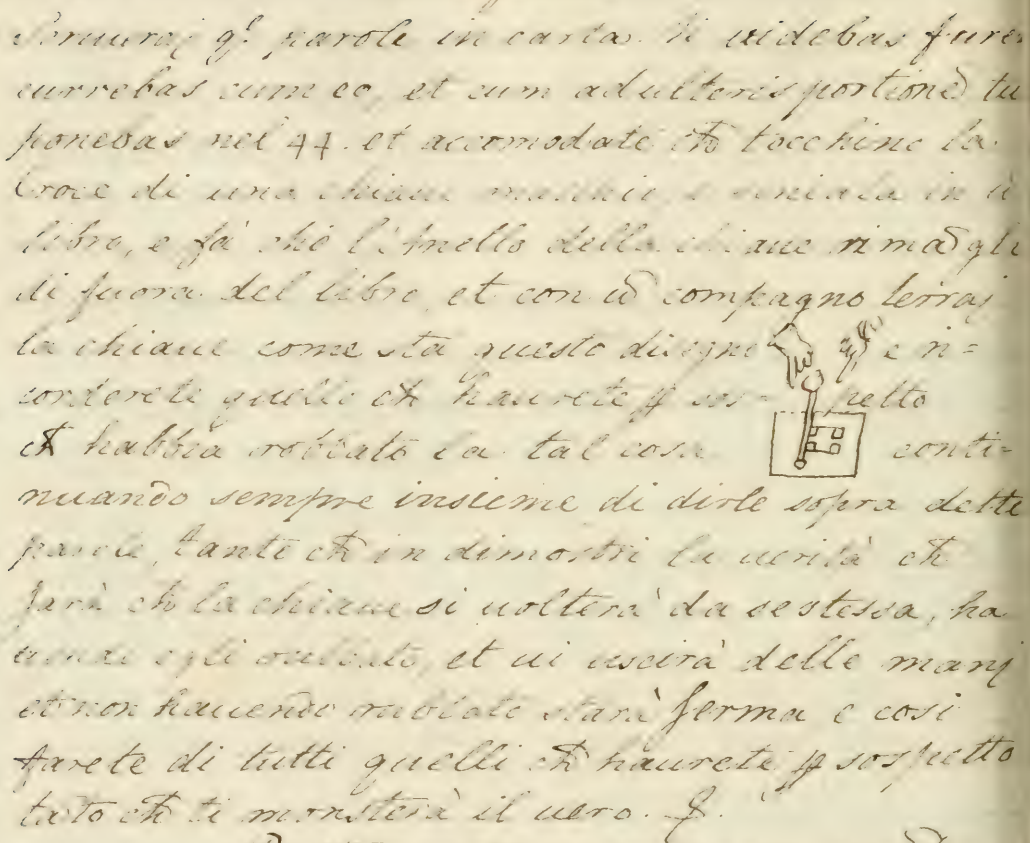 Scriurai q.ͤ parole in carta. Si uidebas fure
currebas cum eo, et cum adulteris portionē tu
ponebas nel 44. et accomodate ch̄ tocchino la
Croce di una chiaue maschia, e in ū
libro, e fà che l'Anello della chiaue rimāgħi
di fuora del libro, et con ū compagno terrai
la chiaue come sta questo disegno e ri=
corderete quelli ch̄ haurete ꝑ sospetto
ch̄ habbia robbato la tal cosa conti=
nuando sempre insieme di dirle sopra dette
parole, tanto ch̄ in dimostri la uerità ch̄
sarà ch̄ la chiaue si uolterà da se stessa, ha
uendo egli robbato, et ui uscirà delle mani
et non hauendo robbato starà ferma e così
farete di tutti quelli ch̄ haurete ꝑ sospetto
tāto ch̄ ti monsterà il uero.